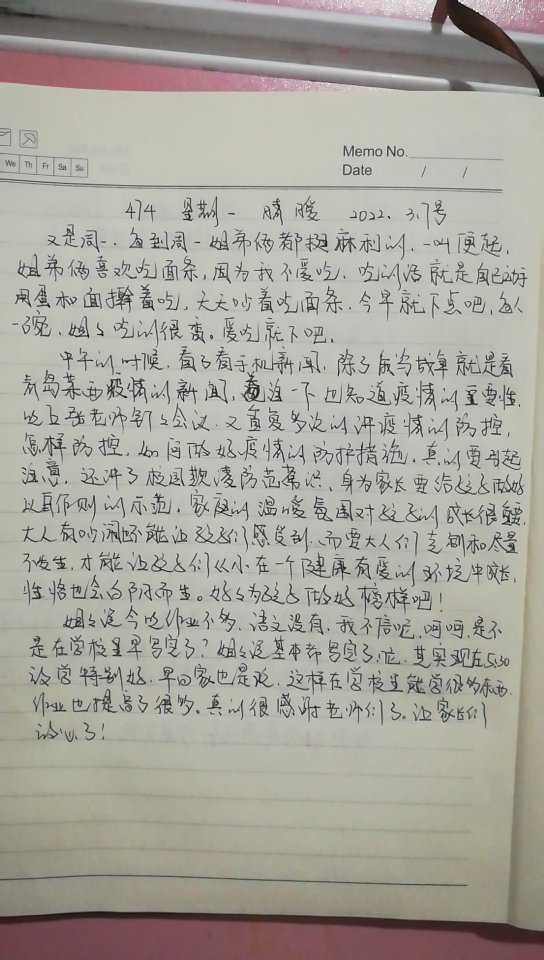 We Th Fr Sa Su
Memo No.
Date / /
474 星期一 晴 暖 2022. 3.7号
又是周一、每到周一姐弟俩都挺麻利的,一叫便起,
姐弟俩喜欢吃面条,因为我不爱吃,吃的话就是自己动手
用蛋和面擀着吃,天天吵着吃面条,今早就下点吧,每人
一碗,姐姐吃的很香。爱吃就下吧。
中午的时候,看了看手机新闻,除了俄乌战争就是看
青岛莱西疫情的新闻,关注一下也知道疫情的重要性,
老师开了会议,又重复多次的讲疫情的防控,
怎样防控,如何做好疫情的防护措施,真的要引起
注意,还讲了校园欺凌防范意识,身为家长要给孩子做好
以身作则的示范,家庭的温暖氛围对孩子的成长很重要,
大人有吵闹还不能让孩子们感受到,而要大人们克制和尽量
不发生,才能让孩子们从小在一个健康有爱的环境中成长,
性格也会向阳而生。好好为孩子做好榜样吧!
姐姐说今晚作业不多,语文没有,我不信呢,呵呵,是不
是在学校里早写完了?姐姐说基本都写完了,哈,其实现在5:30
放学特别好,早回家也是玩,这样在学校里能学很多东西,
作业也提高了很多。真的很感谢老师们了。让家长们
放心了!